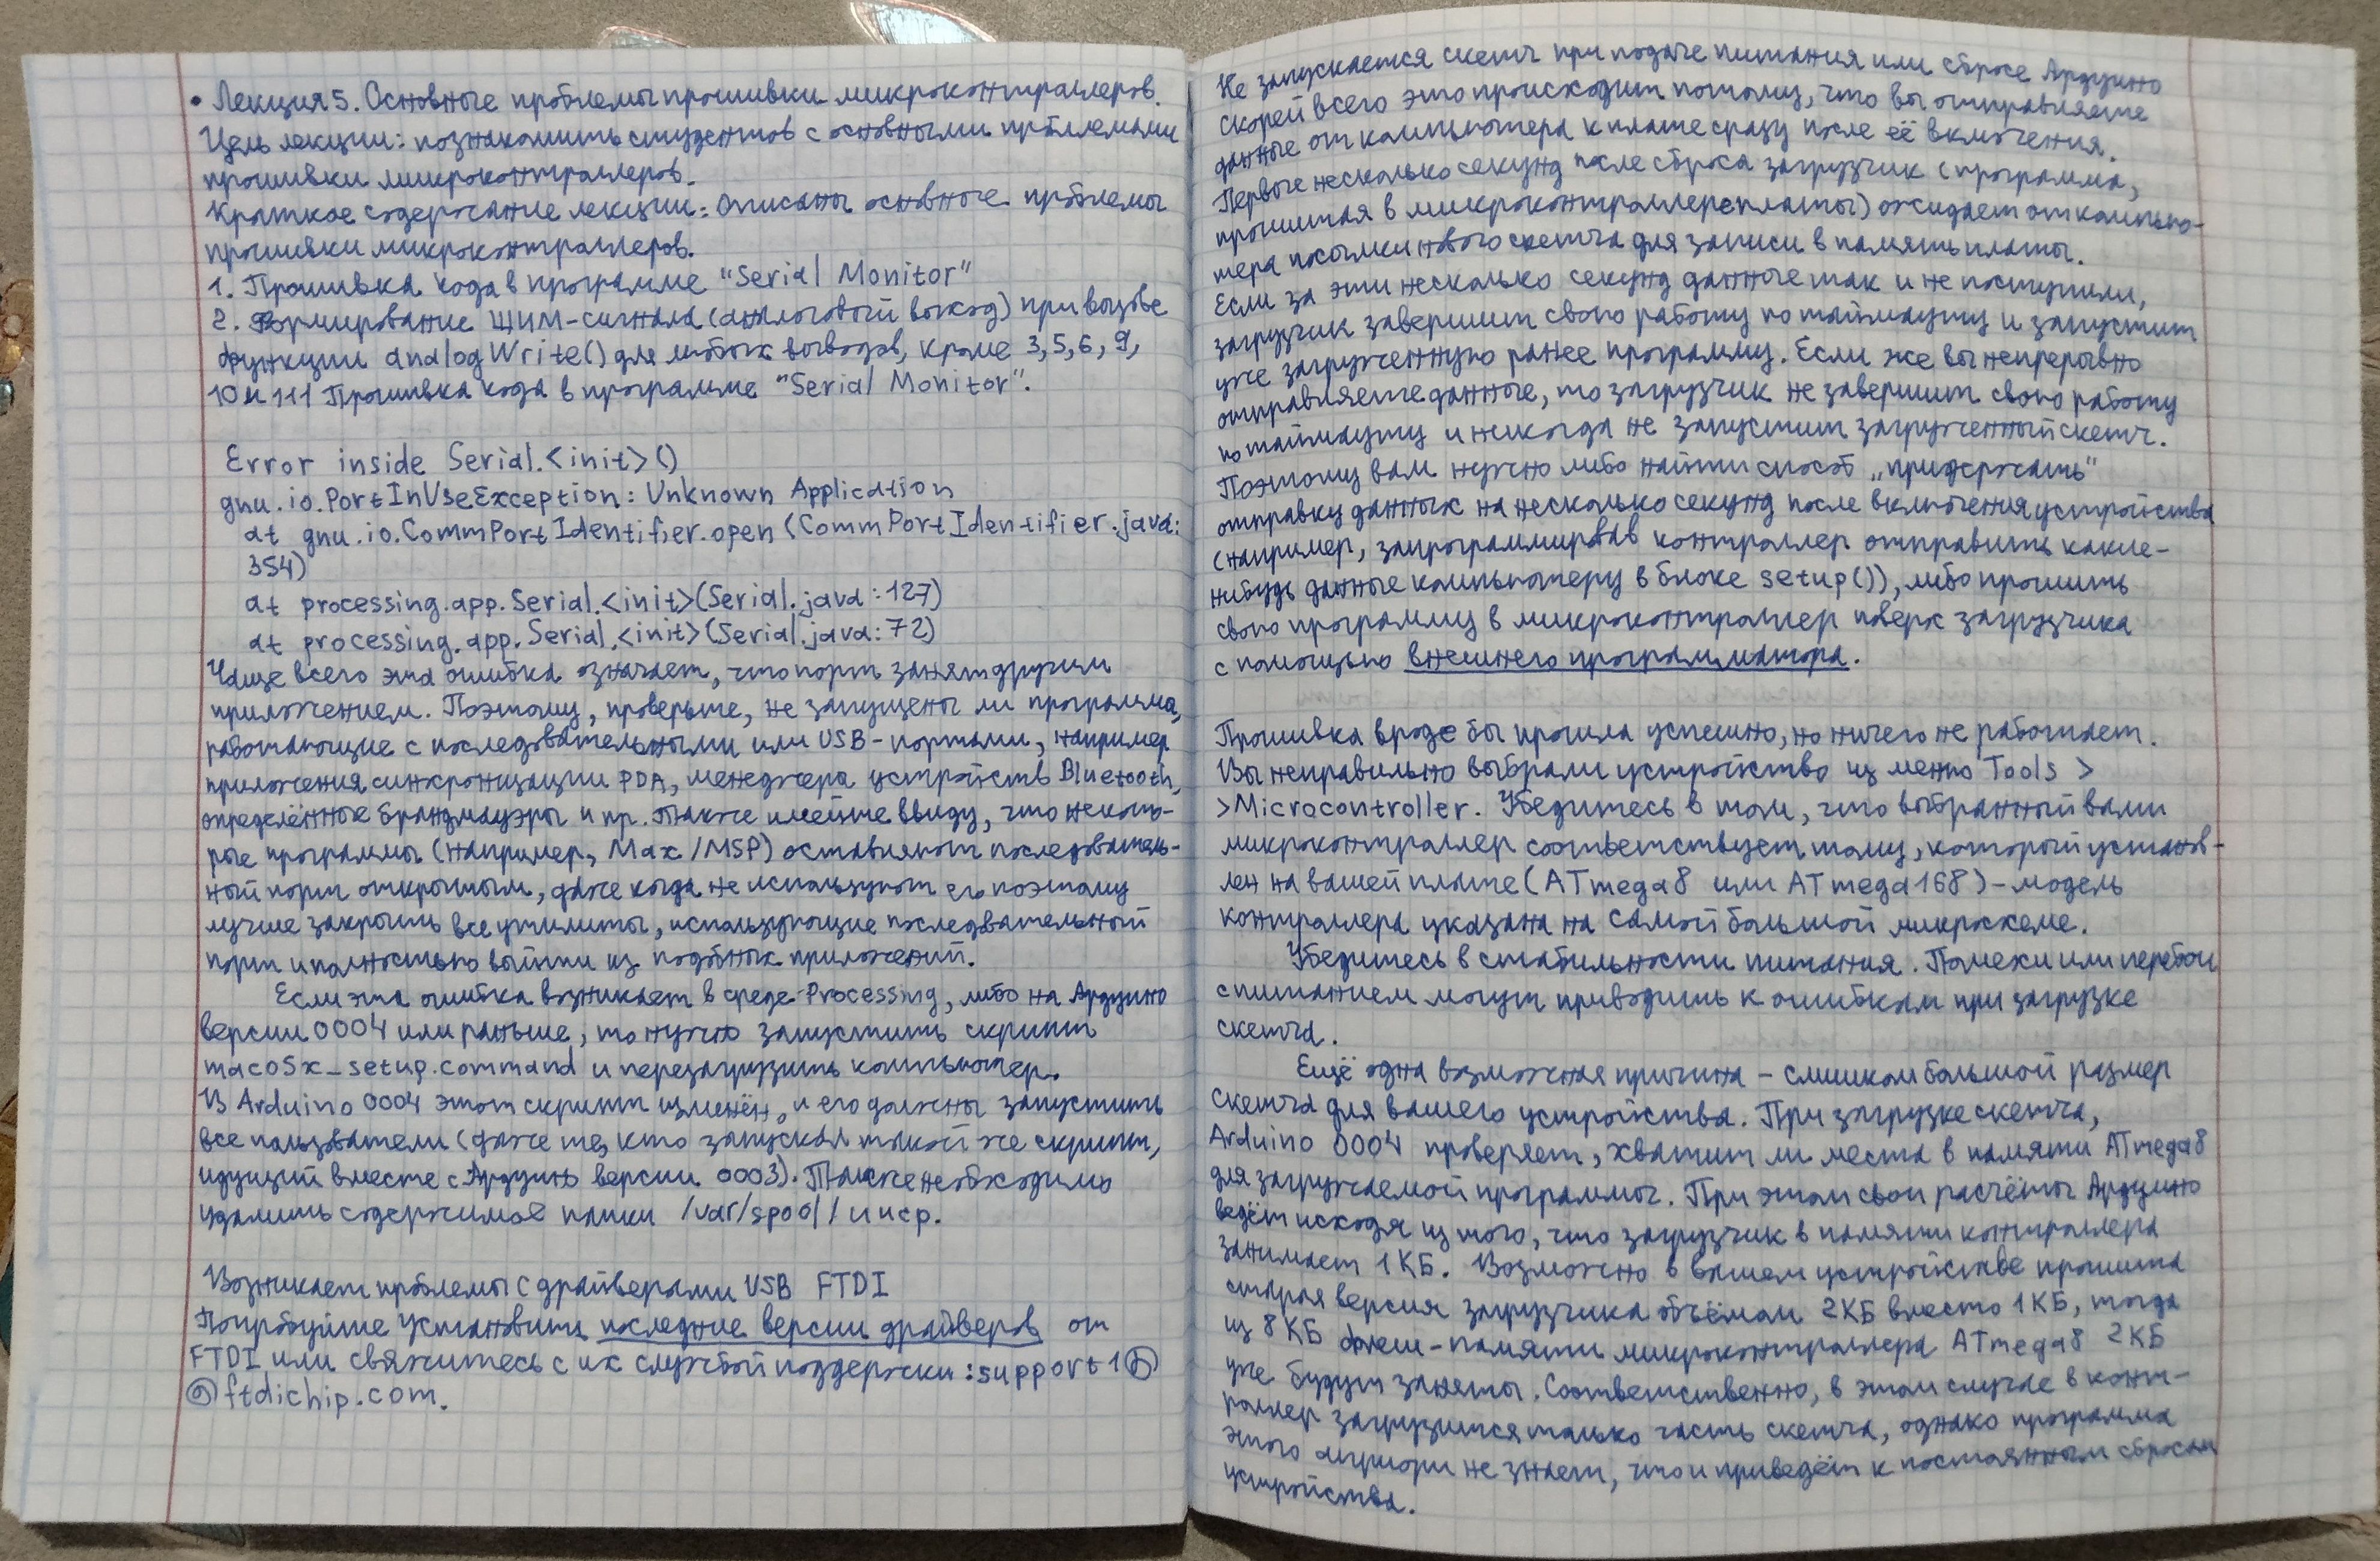 • Лекция 5. Основные проблемы прошивки микроконтраллеров.
Цель лекции: познакомить студентов с основными проблемами
прошивки микроконтраллеров.
Краткое содержание лекции: Описаны основные проблемы
прошивки микроконтраллеров.
1. Прошивка кода в программе "Serial Monitor"
2. Формирование ШИМ-сигнала (аналоговый выход) при вызове
функции analogWrite() для любых выводов, кроме 3, 5, 6, 9,
10 и 111 Прошивка кода в программе "Serial Monitor".
Error inside Serial.<init>()
gnu.io.PortInUseException: Unknown Application
at gnu.io.CommPortIdentifier.open (CommPortIdentifier.java:
354)
at processing.app.Serial.<init>(Serial.java:127)
at processing.app.Serial.<init>(Serial.java:72)
Чаще всего эта ошибка означает, что порт занят другим
приложением. Поэтому, проверьте, не запущены ли программа,
работающие с последовательными или USB-портами, например
приложения синхронизации PDA, менеджера устройств Bluetooth,
определённые брандмауэры и пр. Также имейте ввиду, что некото-
рые программы (например, Max/MSP) оставляют последователь-
ный порт открытым, даже когда не используют его поэтому
лучше закрыть все утилиты, использующие последвательный
порт и полностью выйти из подобных приложений.
Если эта ошибка возникает в среде Processing, либо на Ардуино
версии 0004 или раньше, то нужно запустить скрипт
macosx_setup.command и перезагрузить компьютер.
В Arduino 0004 этот скрипт изменён, и его должны запустить
все пользватели (даже те, кто запускал такой же скрипт,
идущий вместе с Ардуино версии 0003). Также необходимо
удалить содержимое папки /var/spool/uucp.
Возникает проблемы с драйверами USB FTDI
Попробуйте установить последние версии драйверов от
FTDI или свяжитесь с их службой поддержки: support1@
@ftdichip.com.
Не запускается скетч при подаче питания или сбросе Ардуино
Скорей всего это происходит потому, что вы отправляете
данные от компьютера к плате сразу после её включения.
Первые несколько секунд после сброса загрузчик (программа,
прошитая в микроконтраллере платы) ожидает от компью-
тера посылки нового скетча для записи в память платы.
Если за эти несколько секунд данные так и не поступили,
загрузчик завершит свою работу по таймауту и запустит
уже загруженную ранее программу. Если же вы непрерывно
отправляете данные, то загрузчик не завершит свою работу
по таймауту и никогда не запустит загруженный скетч.
Поэтому вам нужно либо найти способ „придержать"
отправку данных на несколько секунд после включения устройства
(например, запрограммировав контроллер отправить какие-
нибудь данные компьютеру в блоке setup()), либо прошить
свою программу в микроконтраллер поверх загрузчика
с помощью внешнего программатора.
Прошивка вроде бы прошла успешно, но ничего не работает.
Вы неправильно выбрали устройство из меню Tools >
>Microcontroller. Убедитесь в том, что выбранный вами
микроконтраллер соответствует тому, который установ-
лен на вашей плате (ATmega8 или ATmega168) - модель
контраллера указана на самой большой микросхеме.
Убедитесь в стабильности питания. Помехи или перебои
с питанием могут приводить к ошибкам при загрузке
скетча.
Ещё одна возможная причина - слишком большой размер
скетча для вашего устройства. При загрузке скетча,
Arduino 0004 проверяет, хватит ли места в памяти ATmega8
для загружаемой программы. При этом свои расчёты Ардуино
ведёт исходя из того, что загрузчик в памяти контраллера
занимает 1КБ. Возможно в вашем устройстве прошита
старая версия загрузчика объёмом 2КБ вместо 1КБ, тогда
из 8КБ флеш-памяти микроконтраллера ATmega8 2КБ
уже будут заняты. Соответственно, в этом случае в конт-
раллер загрузится только часть скетча, однако программа
этого априори не знает, что и приведёт к постоянным сбросам
устройства.